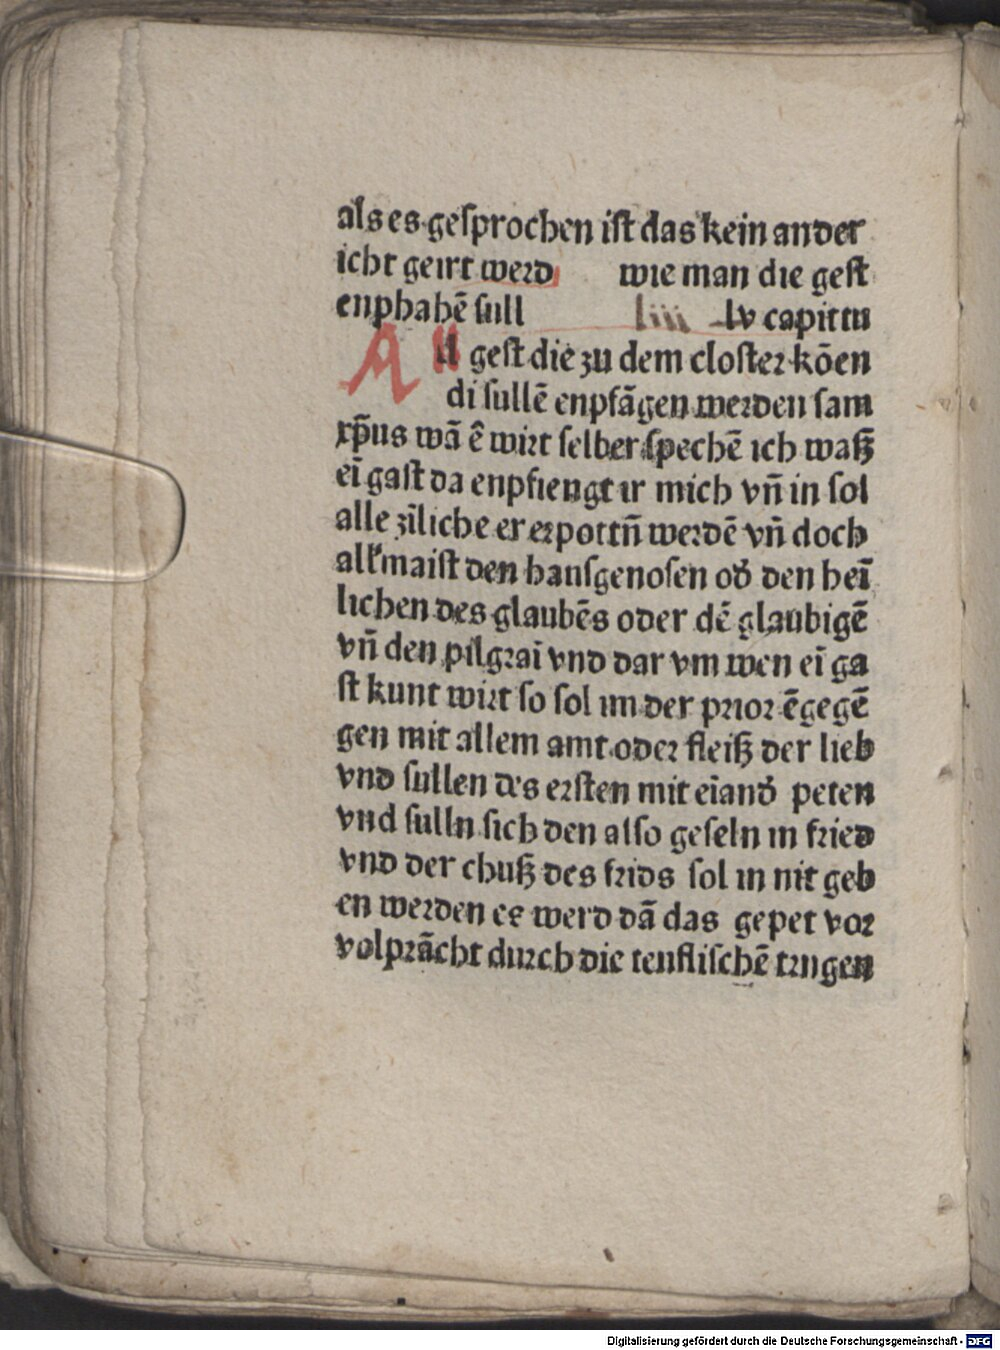 als es gesprochen ist das kein ander
icht geirt werd wie man die gest
enphahē sull liii lv capittu
All gest die zu dem closter kōen
di sullē enpfāgen werden sam
xp̄us wā ē wirt selber spechē ich waß
eī gast da enpfiengt ir mich vn̄ in sol
alle zīliche er erpottn̄ werdē vn̄ doch
all'maist den hausgenosen od' den heī
lichen des glaubēs oder dē glaubigē
vn̄ den pilgraī vnd dar vm wen eī ga
st kunt wirt so sol im der prior ēgegē
gen mit allem amt oder fleiß der lieb
vnd sullen des ersten mit eīand' peten
vnd sulln sich den also geseln in fried
vnd der chuß des frids sol in nit geb
en werden ee werd dā das gepet vor
volprācht durch die teuflischē trugen
Digitalisierung gefördert durch die Deutsche Forschungsgemeinschaft - DFG